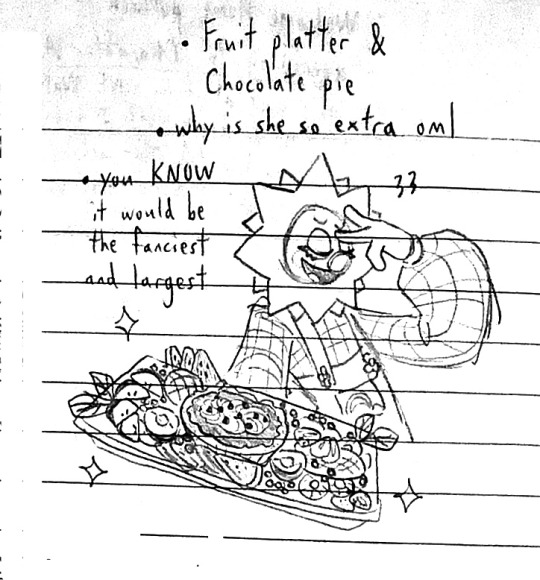 • Fruit platter &
Chocolate pie
• why is she so extra oml
• you KNOW
it would be
the fanciest
and largest